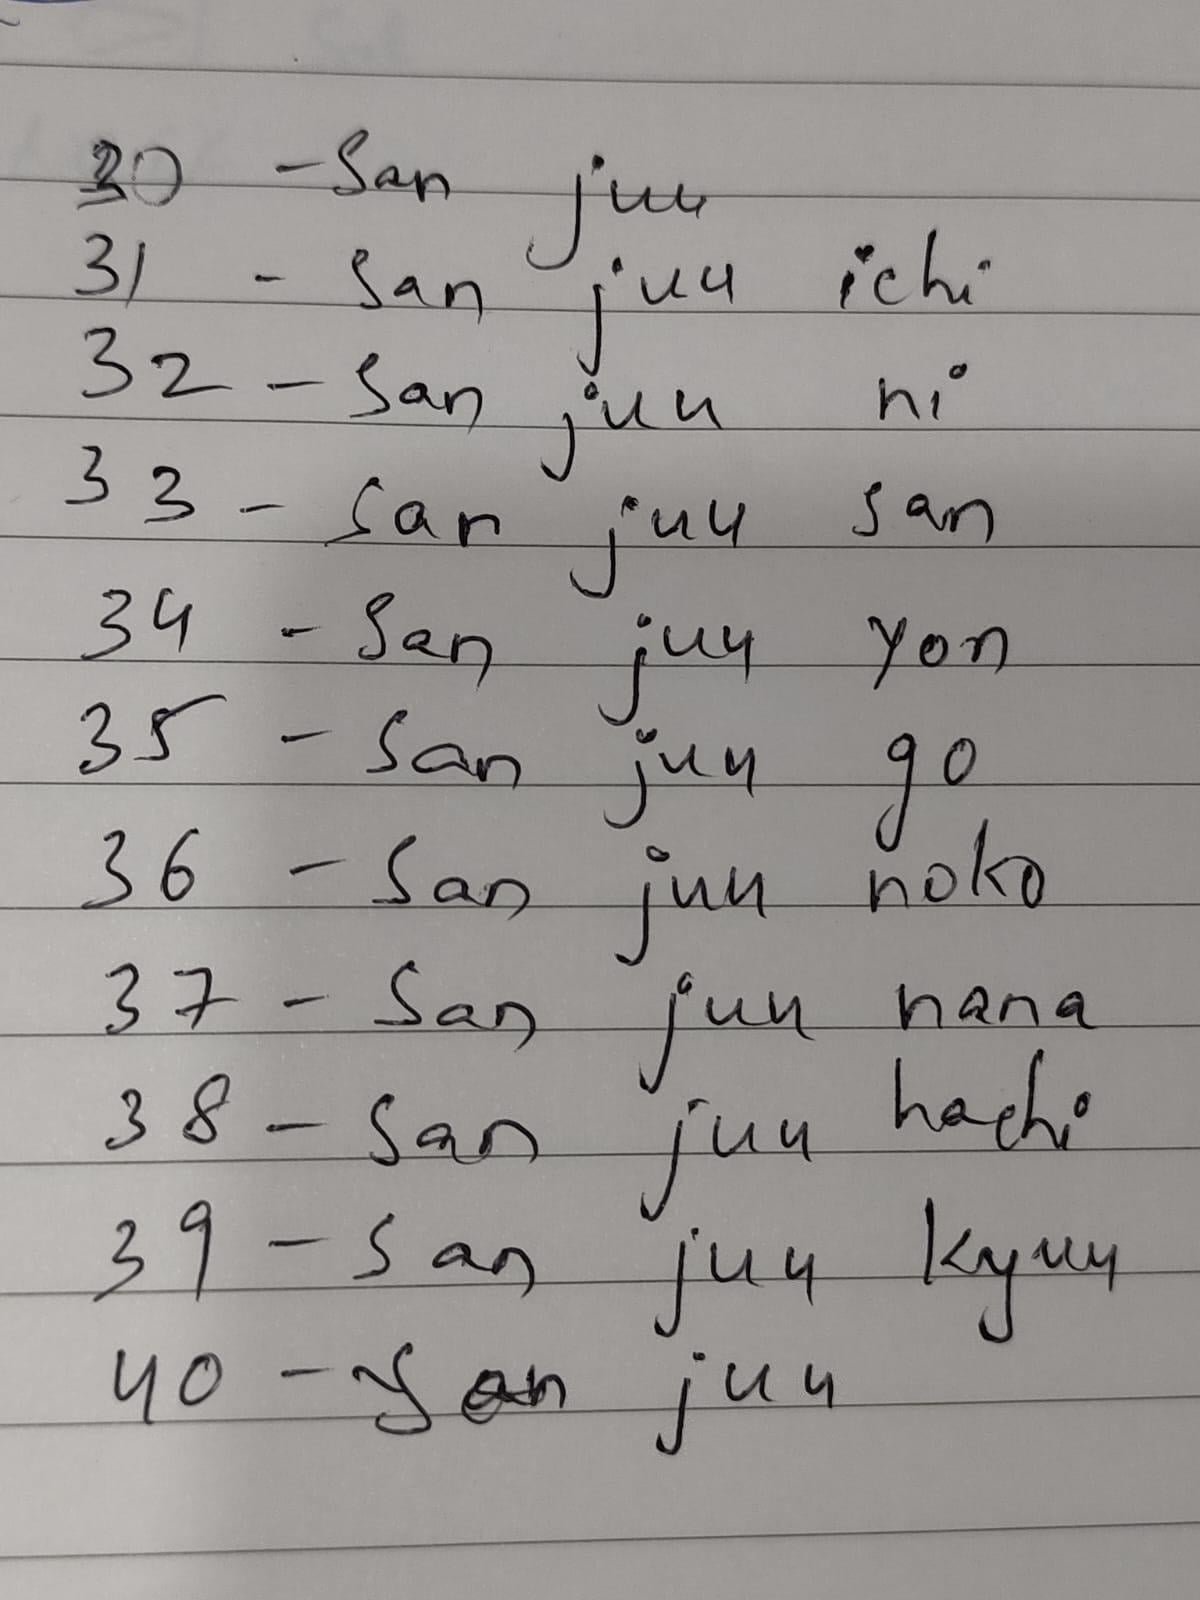 30 - San juu
31 - San juu ichi
32 - San juu ni
33 - San juu san
34 - San juu yon
35 - San juu go
36 - San juu noko
37 - San juu nana
38 - San juu hachi
39 - San juu kyuu
40 - Yon juu